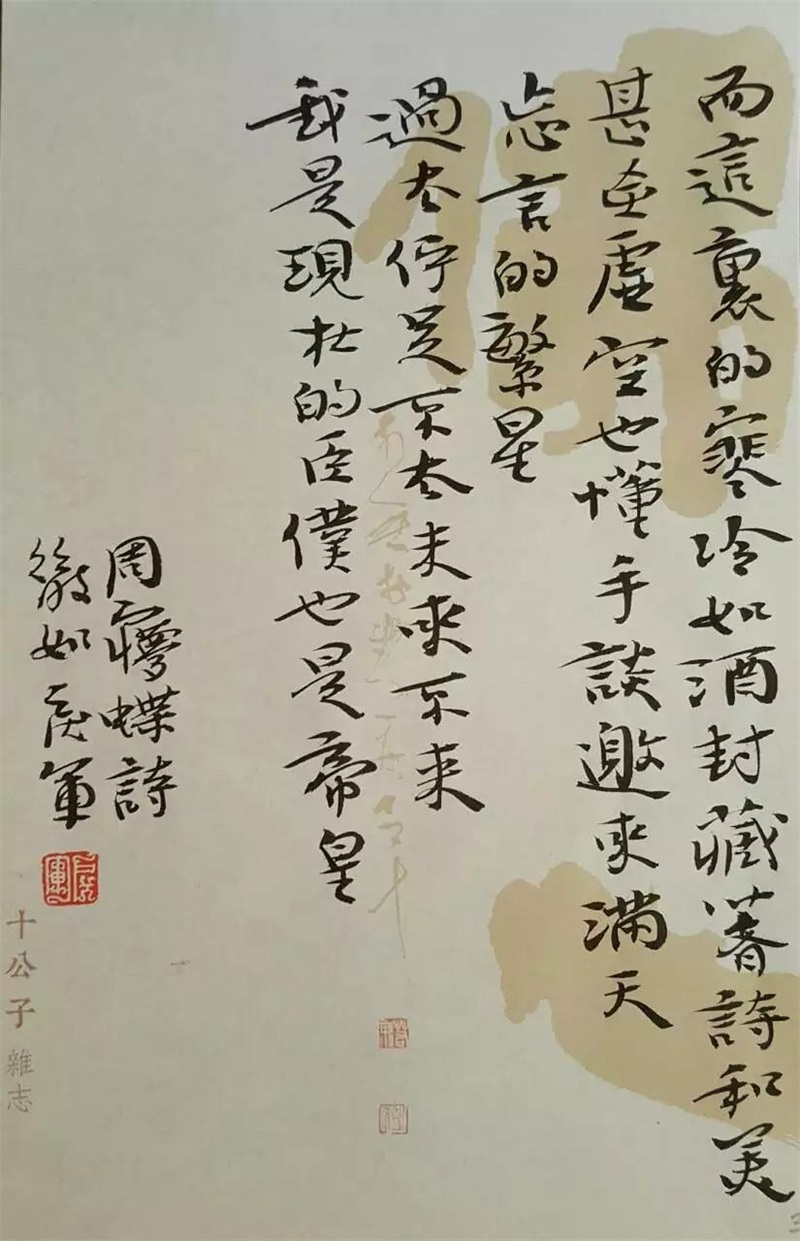 而這裏的寒冷如酒封藏著詩和美
甚至虛空也懂手談邀來滿天
忘言的繁星
過去佇足不去未來不來
我是現在的臣僕也是帝皇
周夢蝶詩
微如庚軍
十公子雜志